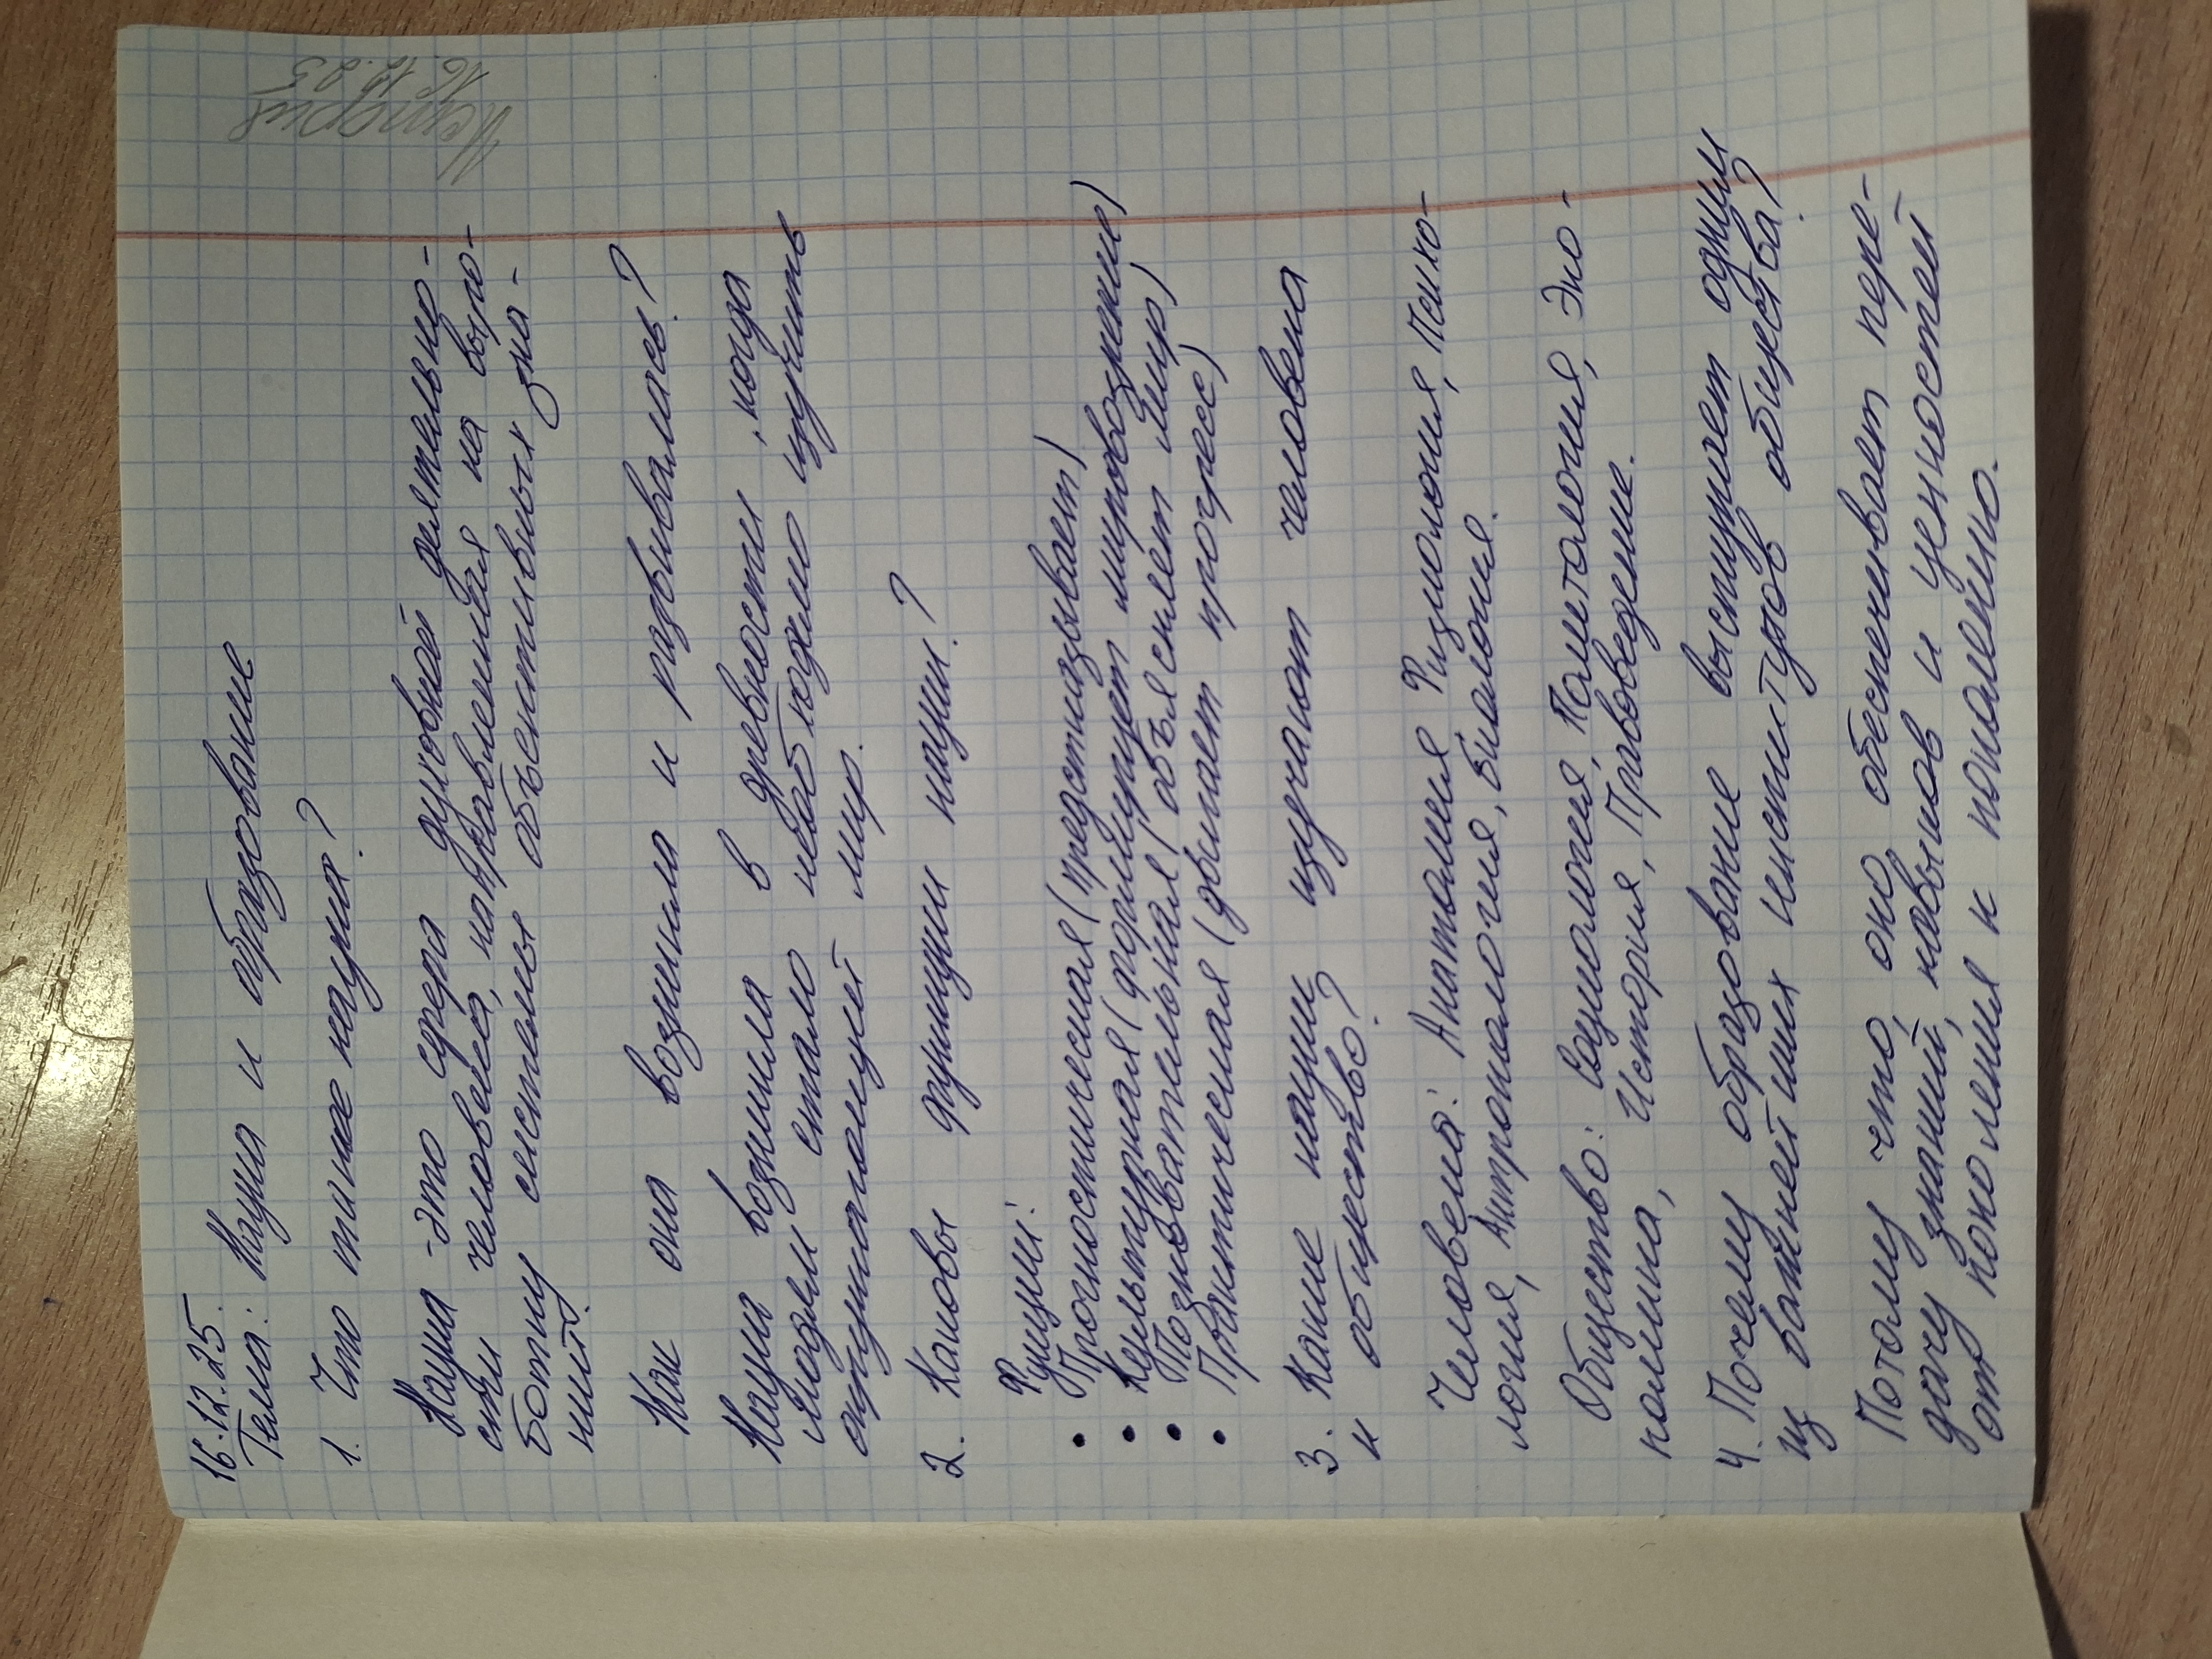 История
16.12.25
16.12.25.
Тема: Наука и образование
1. Что такое наука?
Наука - это сфера духовной деятельно-
сти человека, направленная на выра-
ботку системы объективных зна-
ний.
Как она возникла и развивалась?
Наука возникла в древности, когда
людям стало необходимо изучить
окружающий мир.
2. Каковы функции науки?
Функции:
• Прогностическая (предсказывает)
• Культурная (формирует мировозрение)
• Познавательная (объясняет мир)
• Практическая (двигает прогресс)
3. Какие науки изучают человека
и общество?
Человека: Анатомия Физиология, Психо-
логия, Антропология, Биология.
Общество: Социология, Политология, Эко-
номика, История, Правоведение.
4. Почему образование выступает одним
из важнейших институтов общества?
Потому что, оно обеспечивает пере-
дачу знаний, навыков и ценностей
от поколения к поколению.